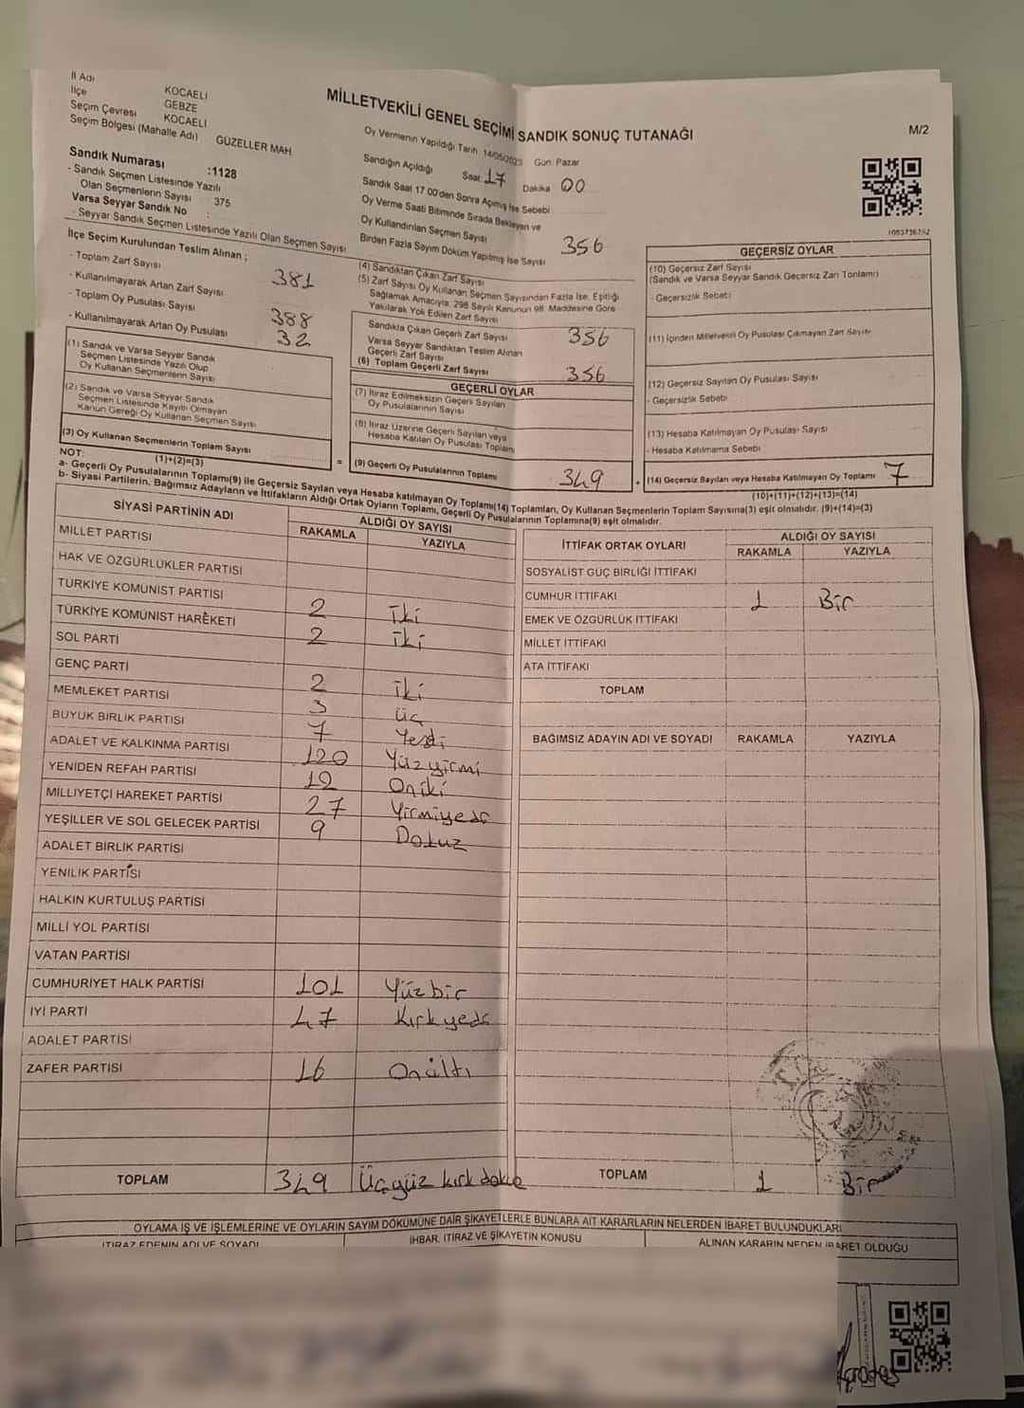 İl Adı KOCAELİ
İlçe GEBZE
Seçim Çevresi KOCAELİ
Seçim Bölgesi (Mahalle Adı) GÜZELLER MAH
MİLLETVEKİLİ GENEL SEÇİMİ SANDIK SONUÇ TUTANAĞI
M/2
Oy Vermenin Yapıldığı Tarih 14/05/2023 Gün: Pazar
Sandığın Açıldığı Saat 17 Dakika 00
Sandık Saat 17.00'den Sonra Açımış İse Sebebi
Oy Verme Saati Bitiminde Sırada Bekleyen ve
Oy Kullandırılan Seçmen Sayısı
Birden Fazla Sayım Döküm Yapılmış İse Sayısı
Sandık Numarası :1128
- Sandık Seçmen Listesinde Yazılı
Olan Seçmenlerin Sayısı 375
Varsa Seyyar Sandık No :
- Seyyar Sandık Seçmen Listesinde Yazılı Olan Seçmen Sayısı
İlçe Seçim Kurulundan Teslim Alınan ;
- Toplam Zarf Sayısı 381
- Kullanılmayarak Artan Zarf Sayısı
- Toplam Oy Pusulası Sayısı 388
- Kullanılmayarak Artan Oy Pusulası 32
(1) Sandık ve Varsa Seyyar Sandık
Seçmen Listesinde Yazılı Olup
Oy Kullanan Seçmenlerin Sayısı
(2) Sandık ve Varsa Seyyar Sandık
Seçmen Listesinde Kayıtlı Olmayan
Kanun Gereği Oy Kullanan Seçmen Sayısı
(3) Oy Kullanan Seçmenlerin Toplam Sayısı
(1)+(2)=(3)
(4) Sandıktan Çıkan Zarf Sayısı 356
(5) Zarf Sayısı Oy Kullanan Seçmen Sayısından Fazla İse, Eşitliği
Sağlamak Amacıyla, 298 Sayılı Kanunun 98. Maddesine Göre
Yakılarak Yok Edilen Zarf Sayısı
Sandıkta Çıkan Geçerli Zarf Sayısı 356
Varsa Seyyar Sandıktan Teslim Alınan
Geçerli Zarf Sayısı
(6) Toplam Geçerli Zarf Sayısı 356
GEÇERLİ OYLAR
(7) İtiraz Edilmeksizin Geçerli Sayılan
Oy Pusulalarının Sayısı
(8) İtiraz Üzerine Geçerli Sayılan veya
Hesaba Katılan Oy Pusulası Toplamı
= (9) Geçerli Oy Pusulalarının Toplamı 349
GEÇERSİZ OYLAR
(10) Geçersiz Zarf Sayısı
(Sandık ve Varsa Seyyar Sandık Geçersiz Zarf Toplamı)
- Geçersizlik Sebebi
(11) İçinden Milletvekili Oy Pusulası Çıkmayan Zarf Sayısı
(12) Geçersiz Sayılan Oy Pusulası Sayısı
- Geçersizlik Sebebi
(13) Hesaba Katılmayan Oy Pusulası Sayısı
- Hesaba Katılmama Sebebi
+ (14) Geçersiz Sayılan veya Hesaba Katılmayan Oy Toplamı 7
(10)+(11)+(12)+(13)=(14)
NOT:
a- Geçerli Oy Pusulalarının Toplamı(9) ile Geçersiz Sayılan veya Hesaba Katılmayan Oy Toplamı(14) Toplamları, Oy Kullanan Seçmenlerin Toplam Sayısına(3) eşit olmalıdır. (9)+(14)=(3)
b- Siyasi Partilerin, Bağımsız Adayların ve İttifakların Aldığı Ortak Oyların Toplamı, Geçerli Oy Pusulalarının Toplamına(9) eşit olmalıdır.
SİYASİ PARTİNİN ADI ALDIĞI OY SAYISI
RAKAMLA YAZIYLA
MİLLET PARTİSİ
HAK VE ÖZGÜRLÜKLER PARTİSİ
TÜRKİYE KOMÜNİST PARTİSİ
TÜRKİYE KOMÜNİST HAREKETİ 2 İki
SOL PARTİ 2 İki
GENÇ PARTİ
MEMLEKET PARTİSİ 2 İki
BÜYÜK BİRLİK PARTİSİ 3 Üç
7 Yedi
ADALET VE KALKINMA PARTİSİ 120 Yüzyirmi
YENİDEN REFAH PARTİSİ 12 Oniki
MİLLİYETÇİ HAREKET PARTİSİ 27 Yirmiyedi
YEŞİLLER VE SOL GELECEK PARTİSİ 9 Dokuz
ADALET BİRLİK PARTİSİ
YENİLİK PARTİSİ
HALKIN KURTULUŞ PARTİSİ
MİLLİ YOL PARTİSİ
VATAN PARTİSİ
CUMHURİYET HALK PARTİSİ 101 Yüzbir
İYİ PARTİ 47 Kırkyedi
ADALET PARTİSİ
ZAFER PARTİSİ 16 Onaltı
TOPLAM 349 Üçyüz kırk dokuz
İTTİFAK ORTAK OYLARI ALDIĞI OY SAYISI
RAKAMLA YAZIYLA
SOSYALİST GÜÇ BİRLİĞİ İTTİFAKI
CUMHUR İTTİFAKI 1 Bir
EMEK VE ÖZGÜRLÜK İTTİFAKI
MİLLET İTTİFAKI
ATA İTTİFAKI
TOPLAM
BAĞIMSIZ ADAYIN ADI VE SOYADI RAKAMLA YAZIYLA
TOPLAM 1 Bir
OYLAMA İŞ VE İŞLEMLERİNE VE OYLARIN SAYIM DÖKÜMÜNE DAİR ŞİKAYETLERLE BUNLARA AİT KARARLARIN NELERDEN İBARET BULUNDUKLARI
İTİRAZ EDENİN ADI VE SOYADI İHBAR, İTİRAZ VE ŞİKAYETİN KONUSU ALINAN KARARIN NEDEN İBARET OLDUĞU